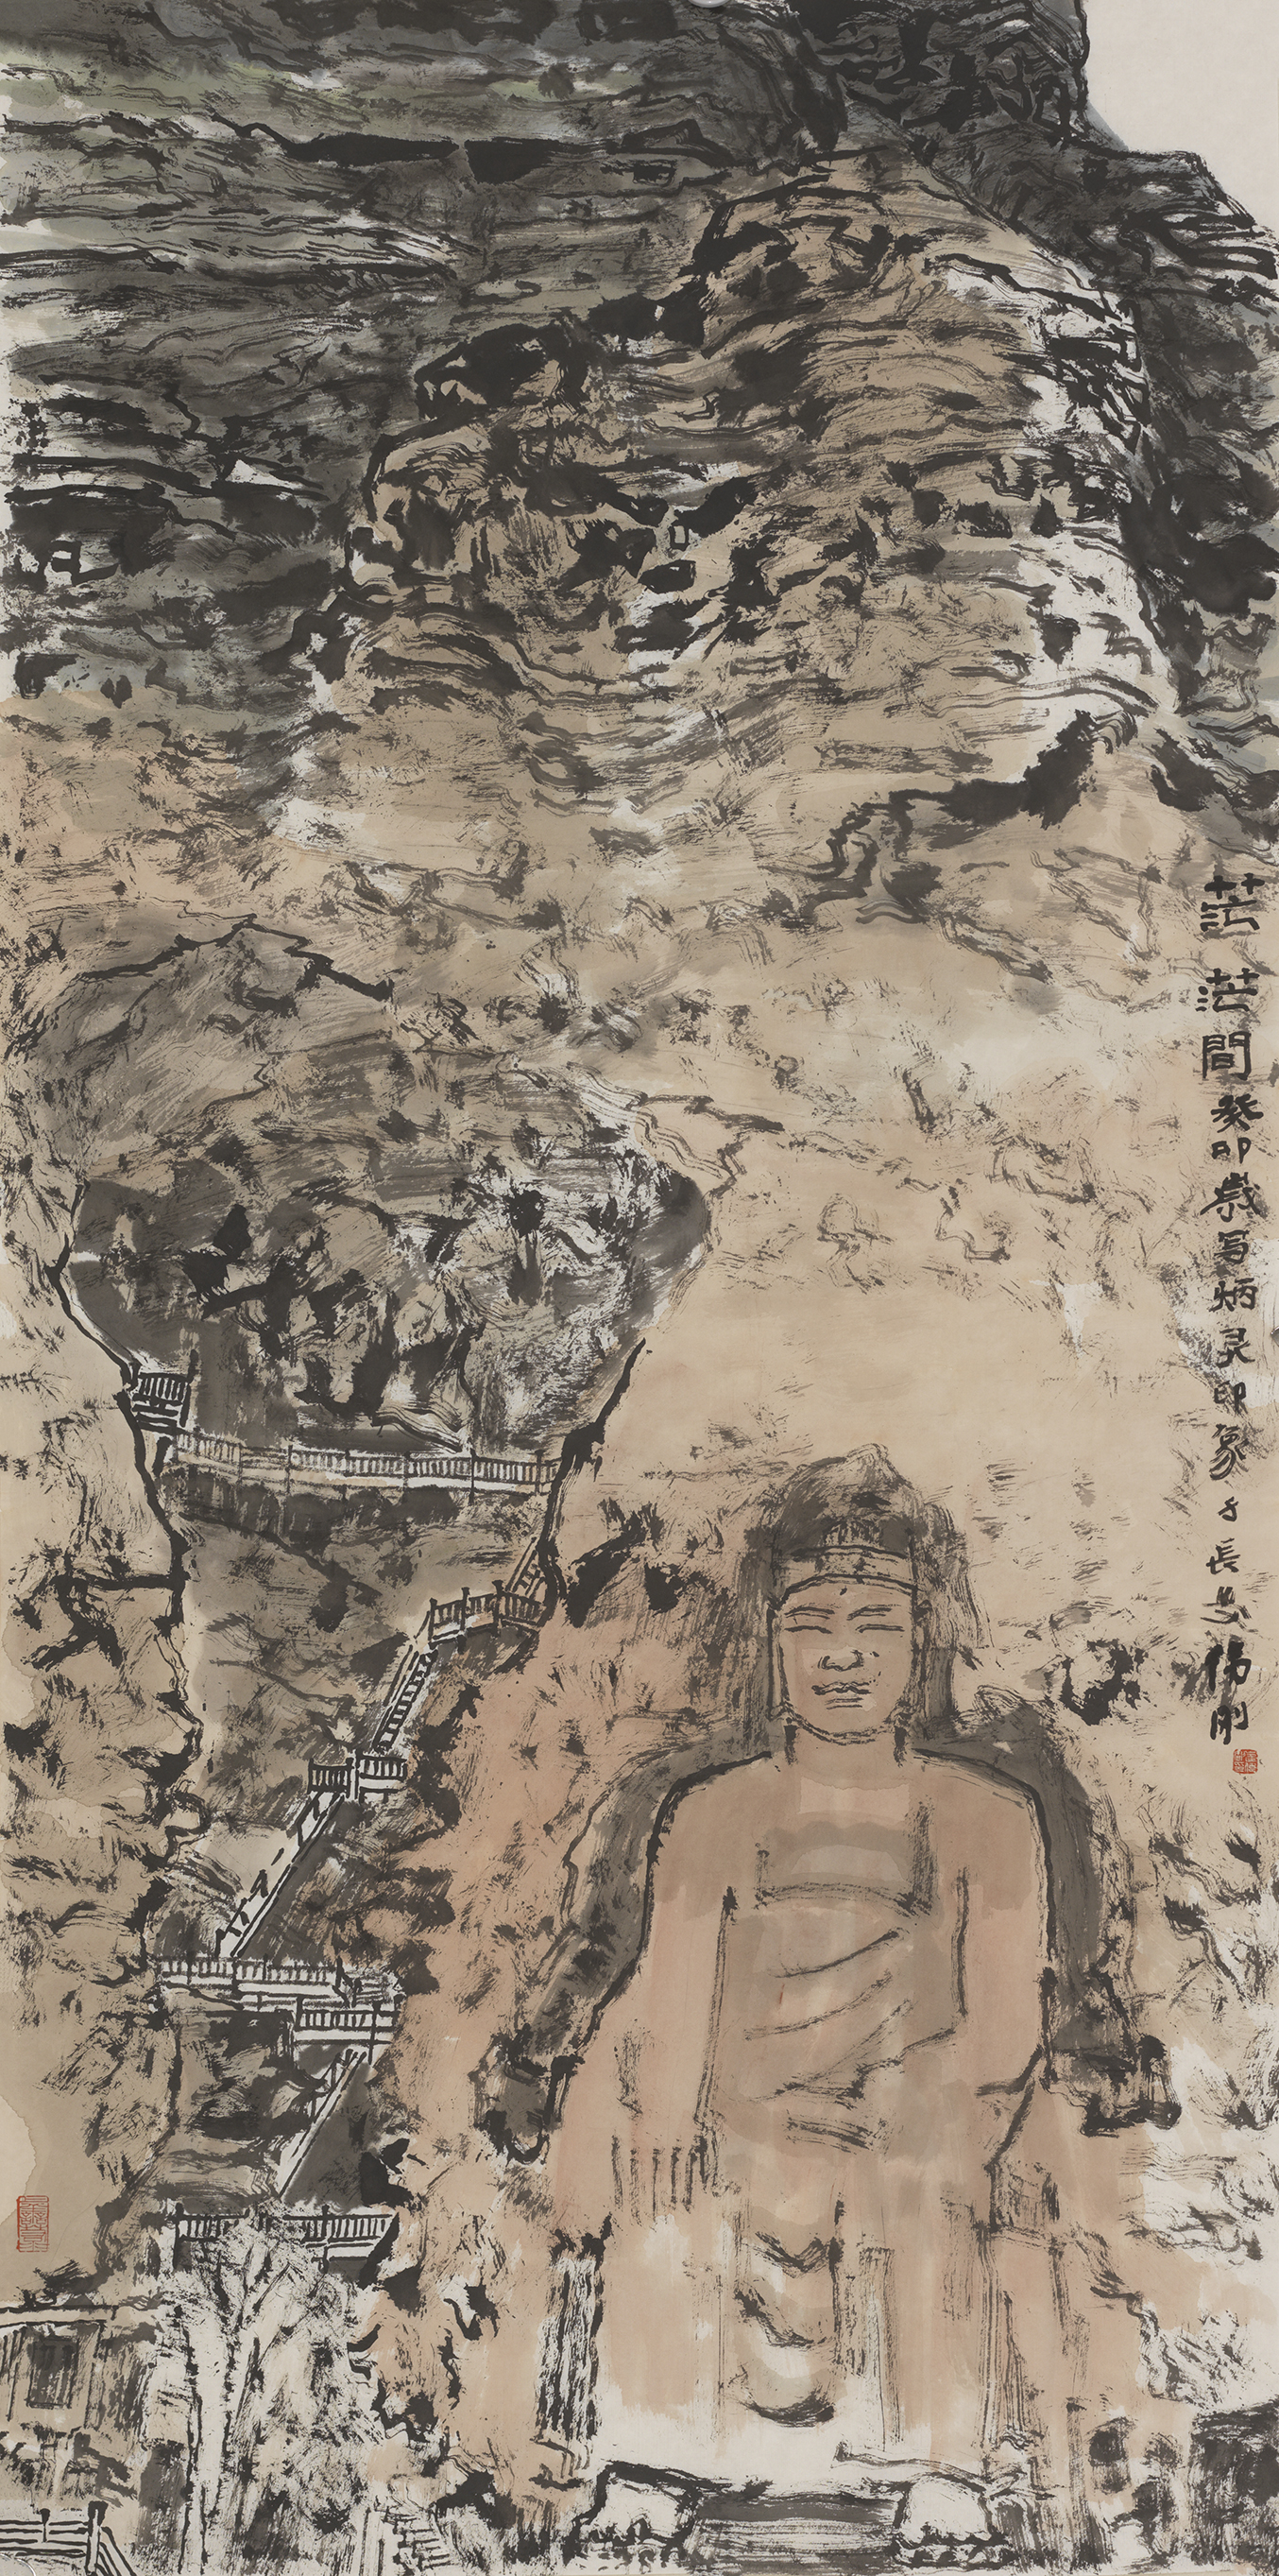 茫茫間癸卯歲写炳灵印象于長安伟剛